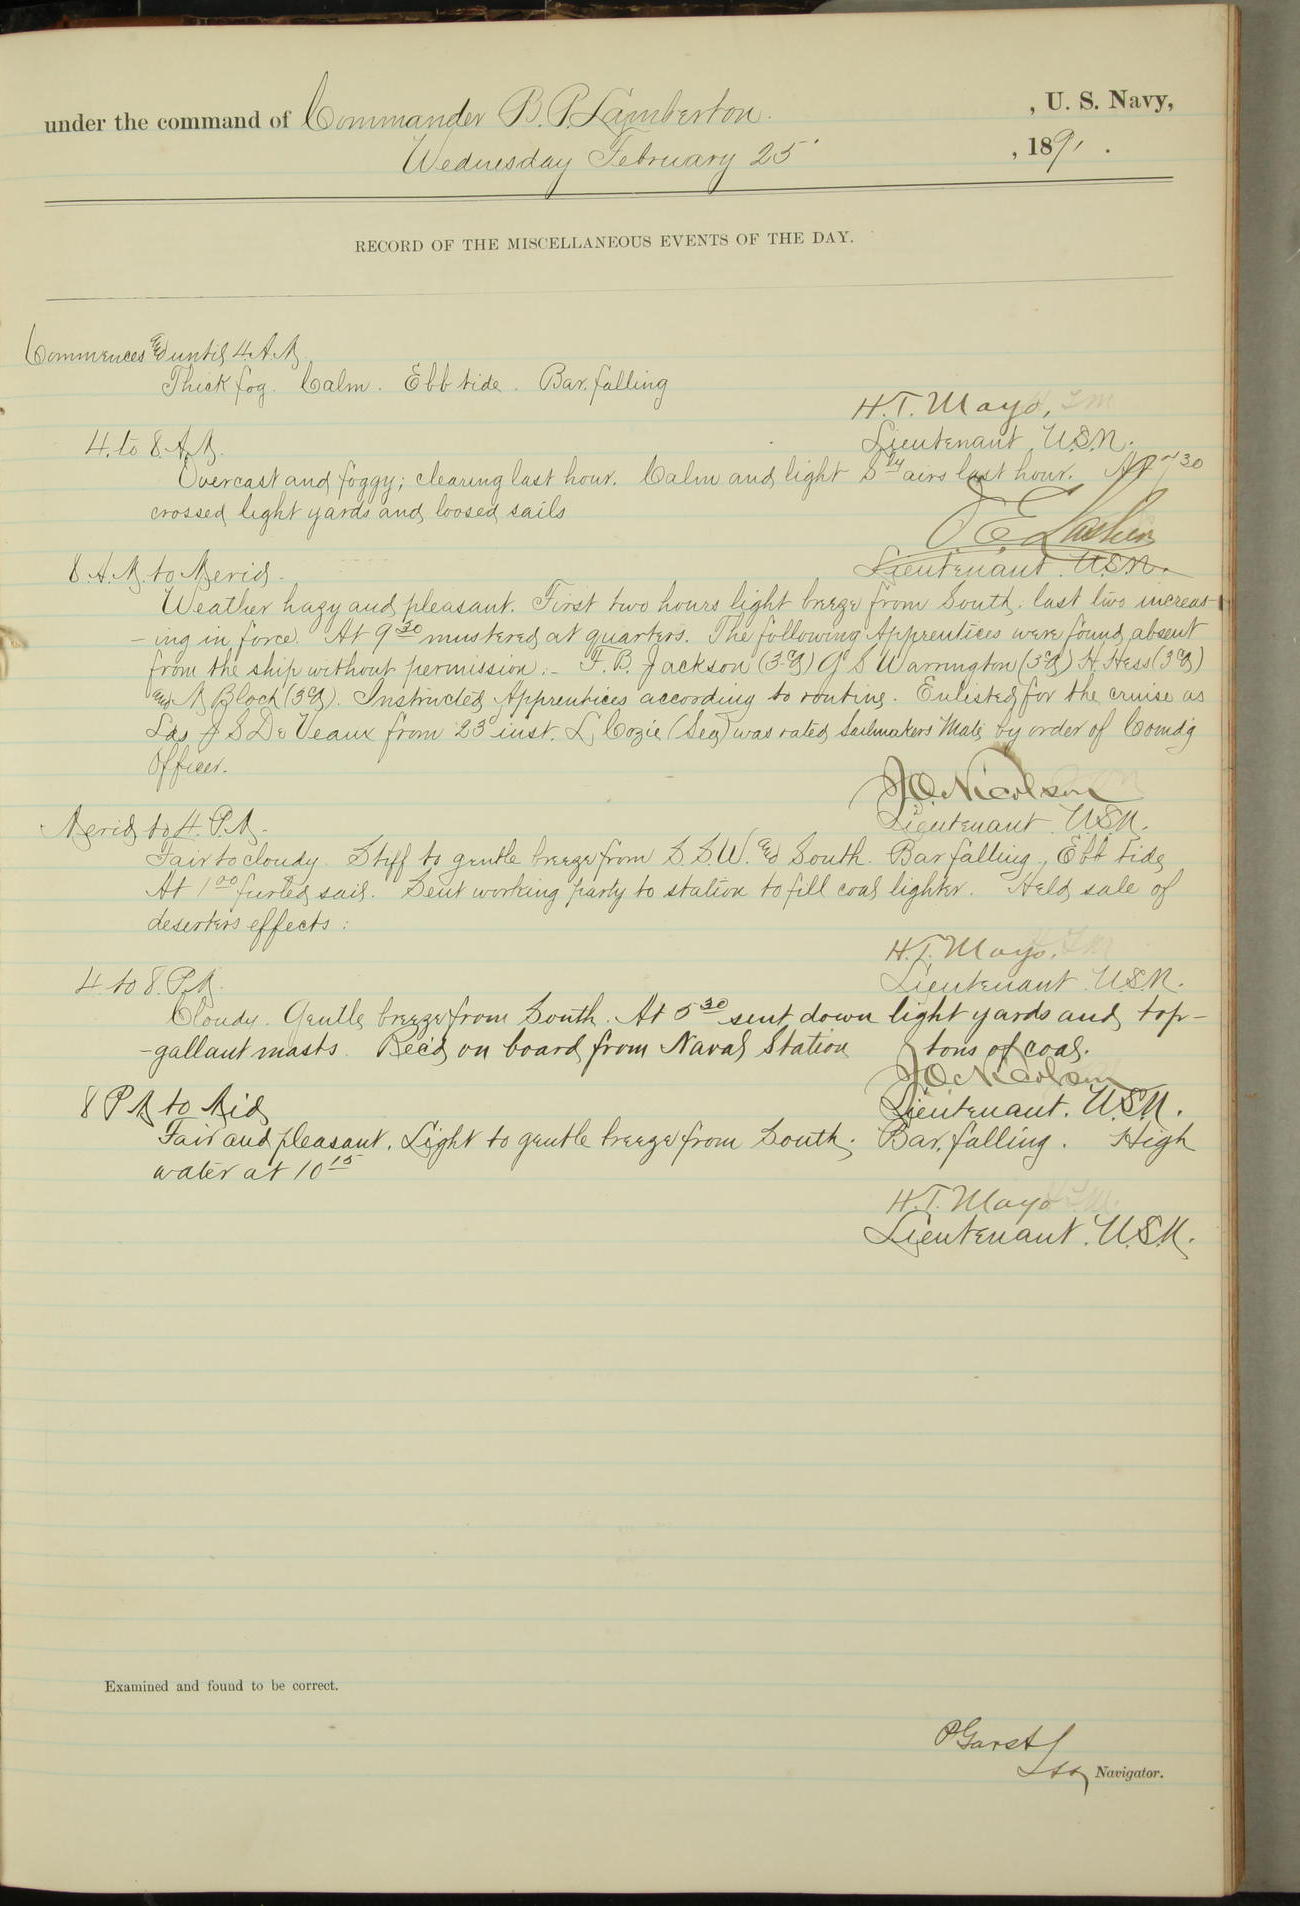 under the command of Commander B. P. Lamberton. , U. S. Navy,
Wednesday February 25 , 1891 .
RECORD OF THE MISCELLANEOUS EVENTS OF THE DAY.
Commences & until 4 A.M.
Thick fog. Calm. Ebb tide. Bar. falling
H. T. Mayo,
Lieutenant U.S.N.
4 to 8 A.M.
Overcast and foggy; clearing last hour. Calm and light S'ly airs last hour. At 7 30
crossed light yards and loosed sails
Lieutenant. U.S.N.
8 A.M. to Merid.
Weather hazy and pleasant. First two hours light breeze from South. last two increas-
-ing in force. At 9 30 mustered at quarters. The following Apprentices were found absent
from the ship without permission:- F. B. Jackson (3 c) G S Warrington (3 c) H. Hess (3 c)
& M Bloch (3 c). Instructed Apprentices according to routine. Enlisted for the cruise as
Lds J S De Veaux from 23 inst. L Cozie (Sea) was rated Sailmakers Mate by order of Comdg
Officer.
J O Nicolson
Lieutenant. U.S.N.
Merid to 4 P.M.
Fair to cloudy. Stiff to gentle breeze from S. S. W. & South. Bar falling, Ebb tide,
At 1 00 furled sail. Sent working party to station to fill coal lighter. Held sale of
deserters effects:
H. T. Mayo.
Lieutenant U.S.N.
4 to 8 P.M.
Cloudy. Gentle breeze from South. At 5 30 sent down light yards and top-
-gallant masts. Rec'd on board from Naval Station tons of coal.
J O Nicolson
Lieutenant. U.S.N.
8 P M to Mid
Fair and pleasant. Light to gentle breeze from South. Bar. falling. High
water at 10 15
H. T. Mayo
Lieutenant. U.S.N.
Examined and found to be correct.
P Garst
Navigator.